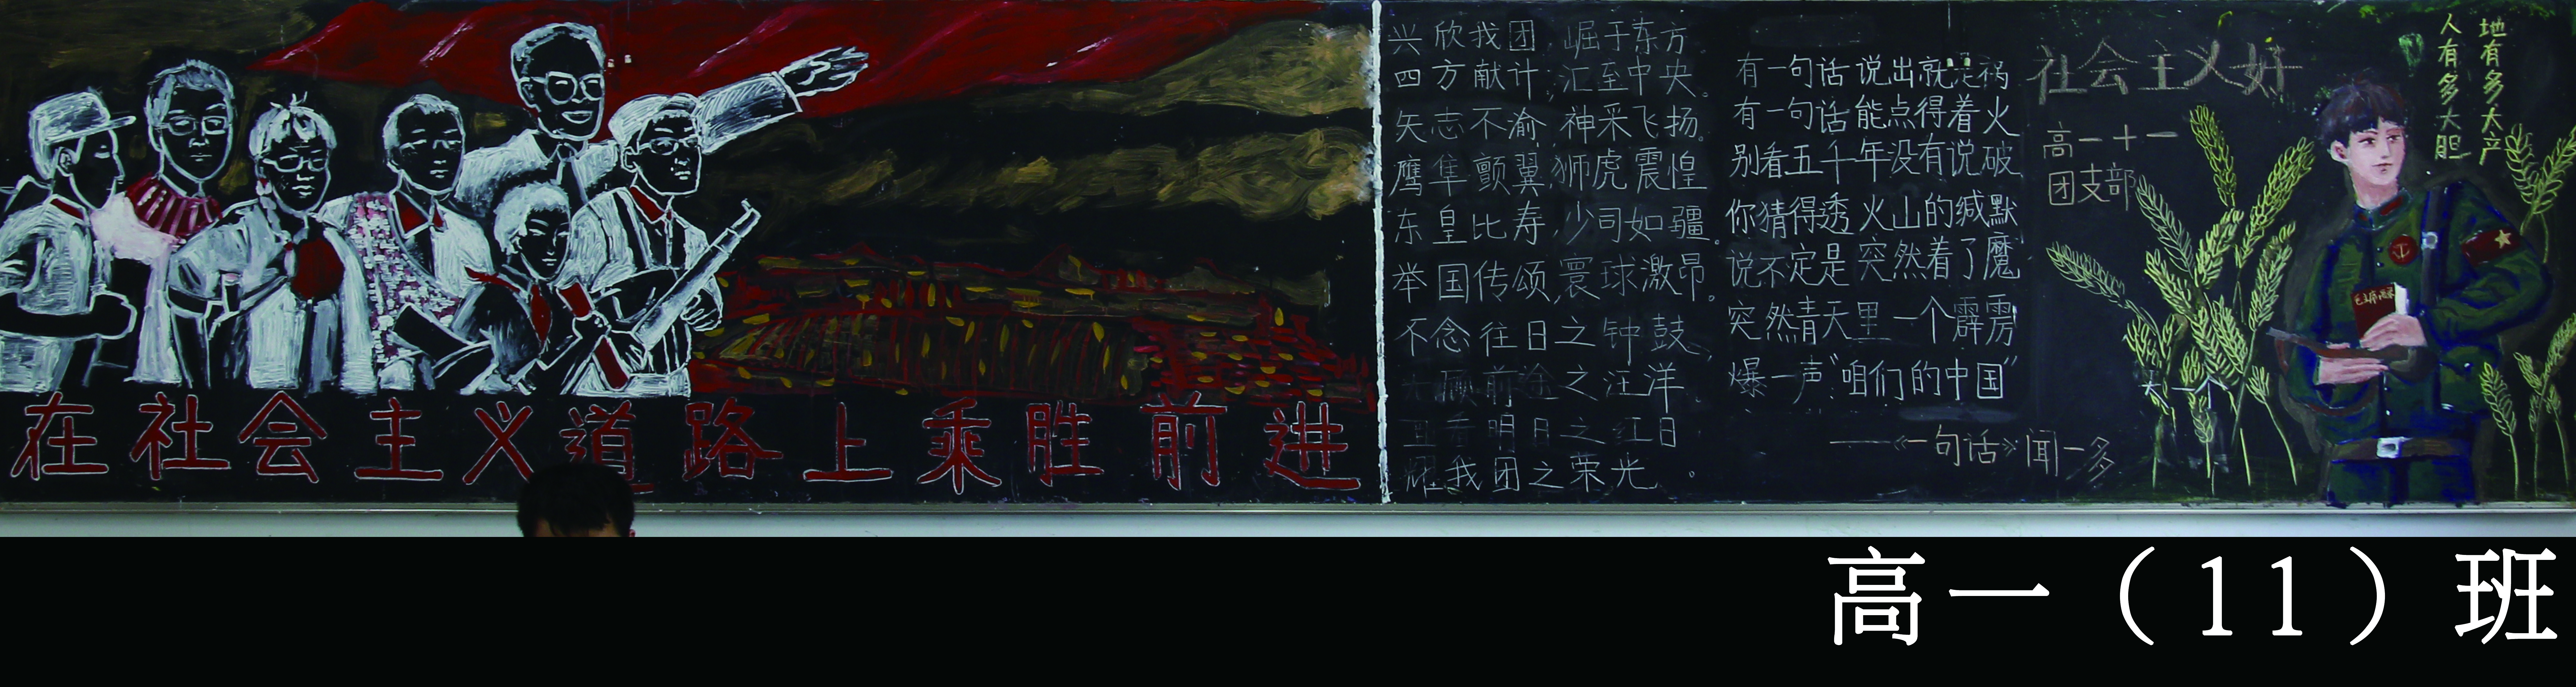 在社会主义道路上乘胜前进
兴欣我团,崛于东方。
四方献计,汇至中央。
矢志不渝,神采飞扬。
鹰隼颤翼,狮虎震惶
东皇比寿,少司如疆。
举国传颂,寰球激昂。
不念往日之钟鼓,
顾前途之汪洋
明日之红日
耀我团之荣光。
有一句话说出就是祸
有一句话能点得着火
别看五千年没有说破
你猜得透火山的缄默
说不定是突然着了魔
突然青天里一个霹雳
爆一声"咱们的中国"
——《一句话》闻一多
社会主义好
高一十一
团支部
人有多大胆
地有多大产
毛主席语录
高一(11)班